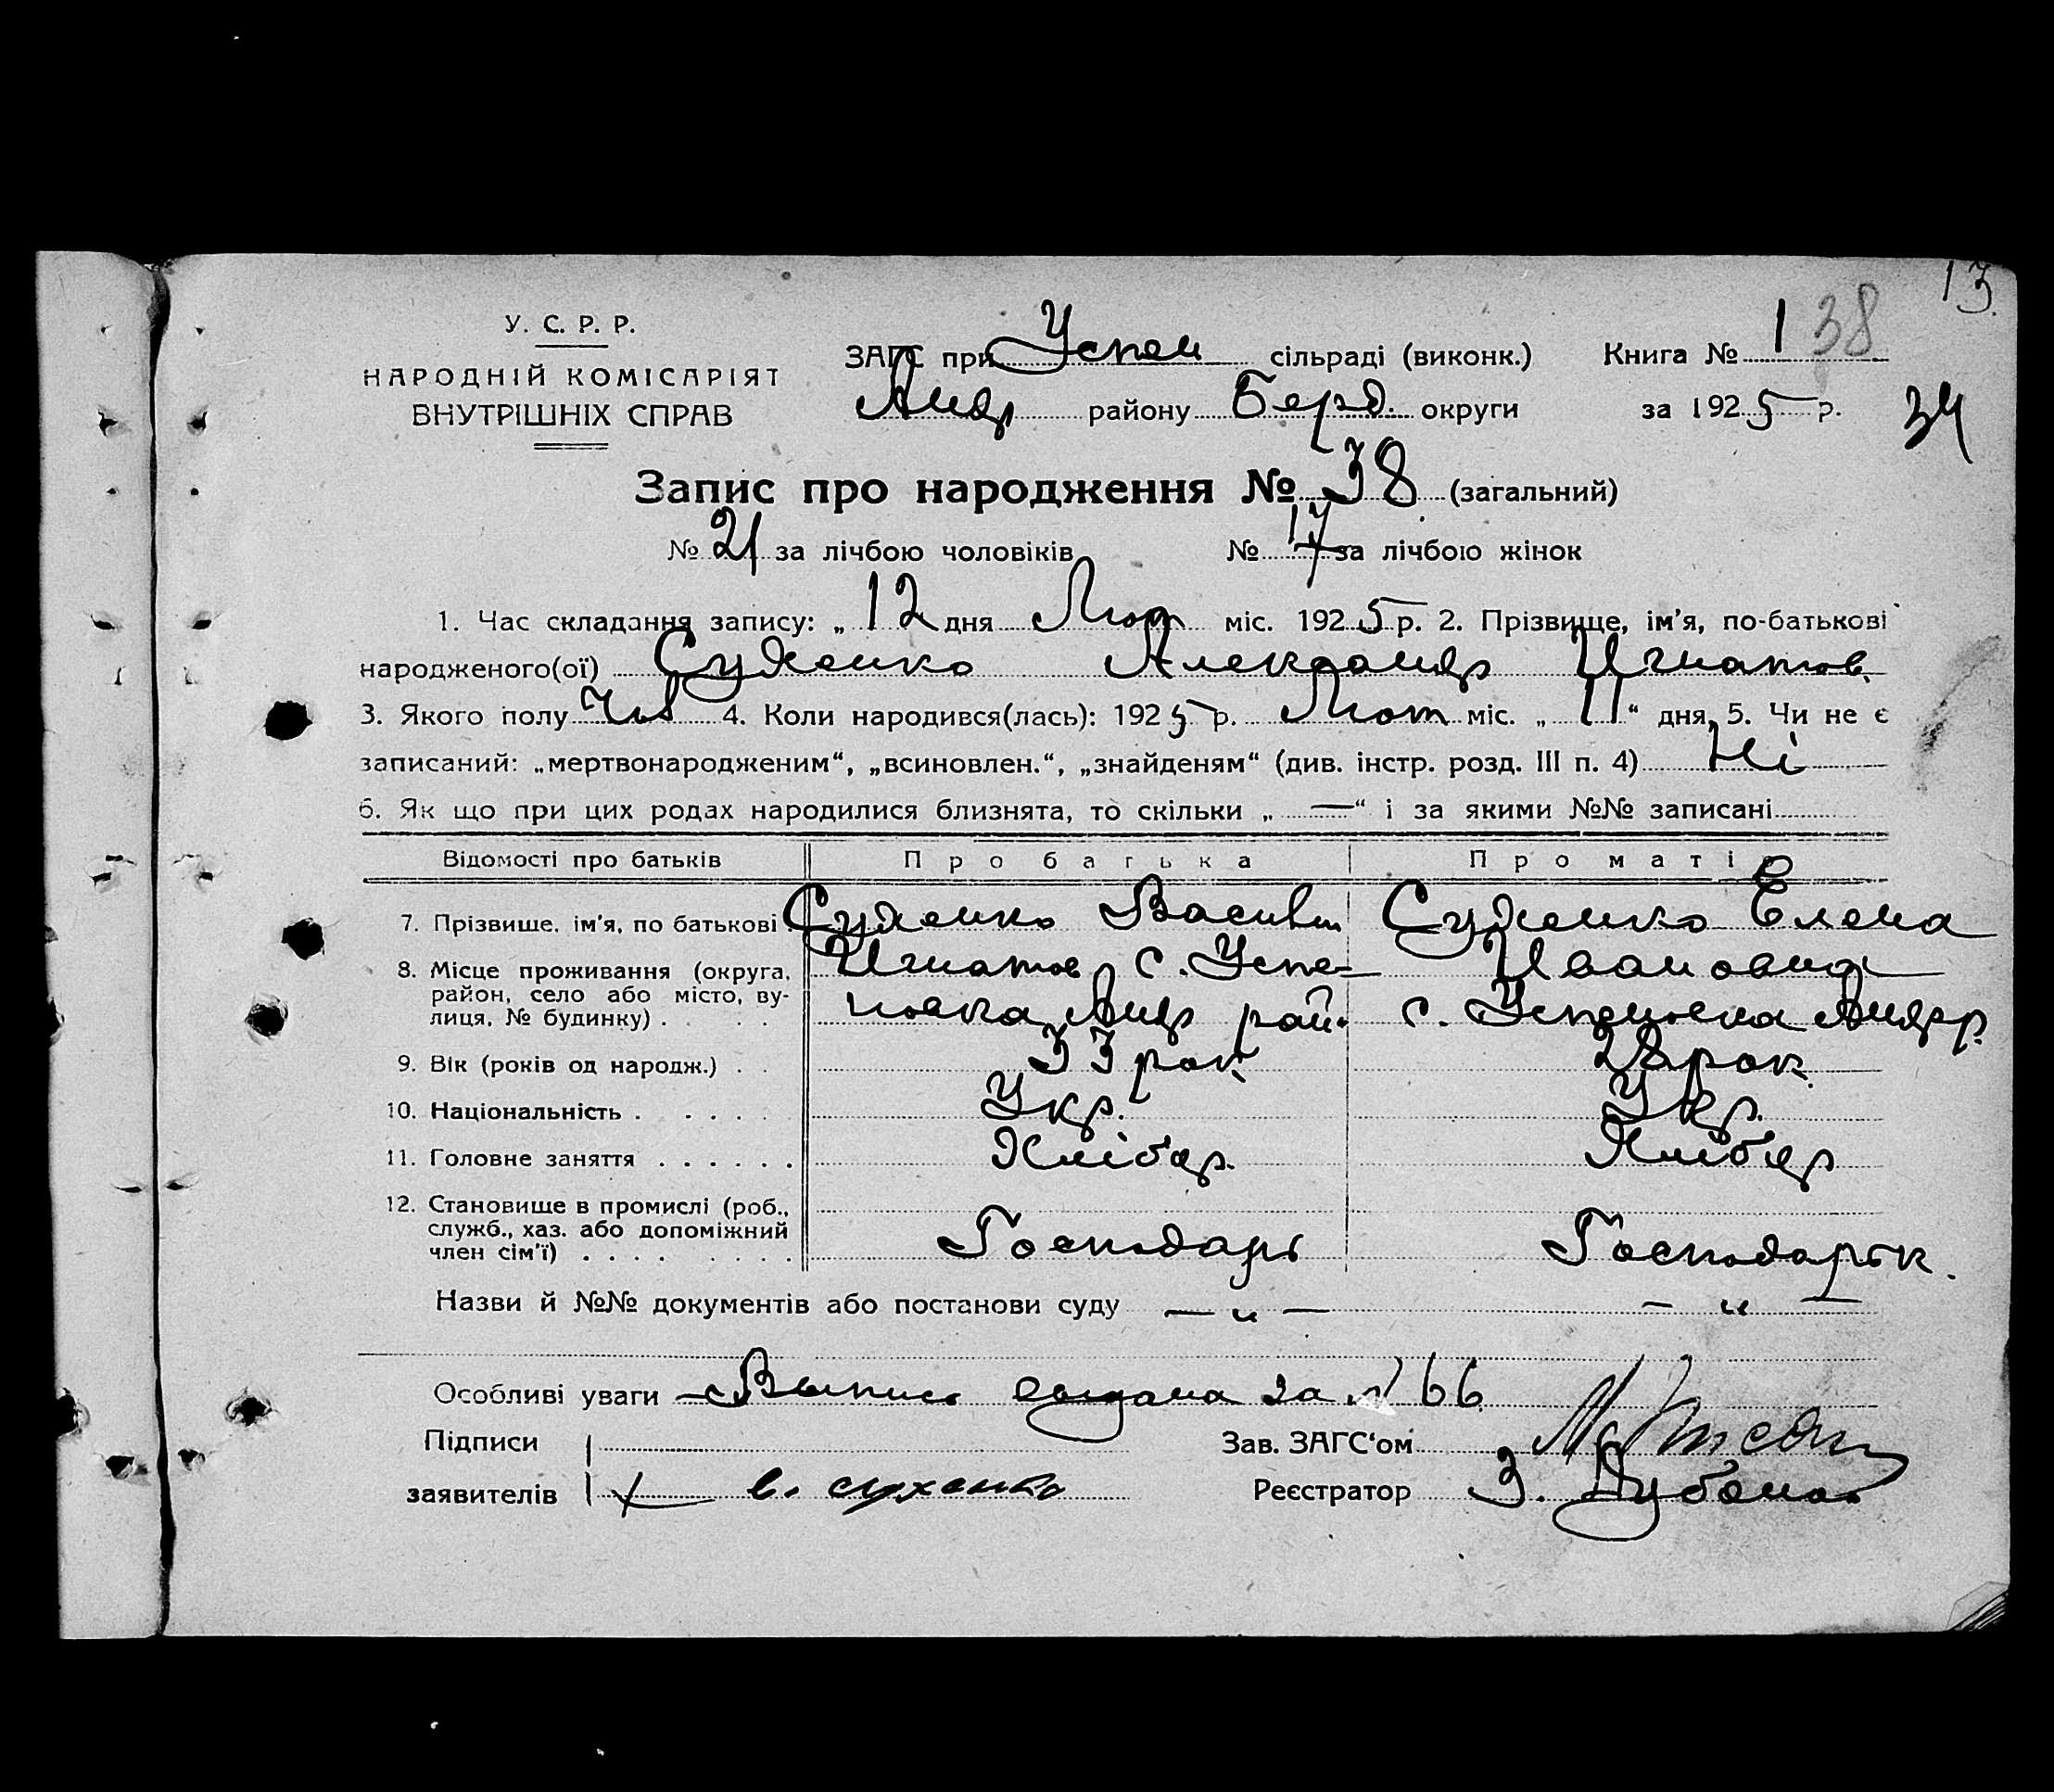 13
У. С. Р. Р.
НАРОДНІЙ КОМІСАРІЯТ
ВНУТРІШНІХ СПРАВ
ЗАГС при Успен сільраді (виконк.) Книга № 1 38
Андр району Берд. округи за 1925 р. 34
Запис про народження № 38 (загальний)
№ 21 за лічбою чоловіків № 17 за лічбою жінок
1. Час складання запису: „ 12 дня Лют міс. 1925 р. 2. Прізвище, ім'я, по-батькові
народженого(ої) Сухенко Александр Игнатов.
3. Якого полу Чол 4. Коли народився(лась): 1925 р. Лют міс. „ 11 “ дня, 5. Чи не є
записаний: „мертвонародженим“, „всиновлен.“, „знайденям“ (див. інстр. розд. III п. 4) Ні
6. Як що при цих родах народилися близнята, то скільки „ — “ і за якими №№ записані
Відомості про батьків Про батька Про матір
7. Прізвище, ім'я, по батькові Сухенко Васили Сухенко Елена
8. Місце проживання (округа, Игнатов с. Успе- Ивановна
район, село або місто, ву-
лиця, № будинку) новка Андр рай. с. Успеновка Андр р.
9. Вік (років од народж.) 33 рок. 28 рок.
10. Національність Укр. Укр.
11. Головне заняття Хлібор. Хлібор
12. Становище в промислі (роб.,
служб., хаз. або допоміжний
член сім'ї) Господарь Господарьк.
Назви й №№ документів або постанови суду — „ — — „ —
Особливі уваги Выпись выдана за № 66
Підписи Зав. ЗАГС'ом
заявителів в. сухенко Реєстратор З.